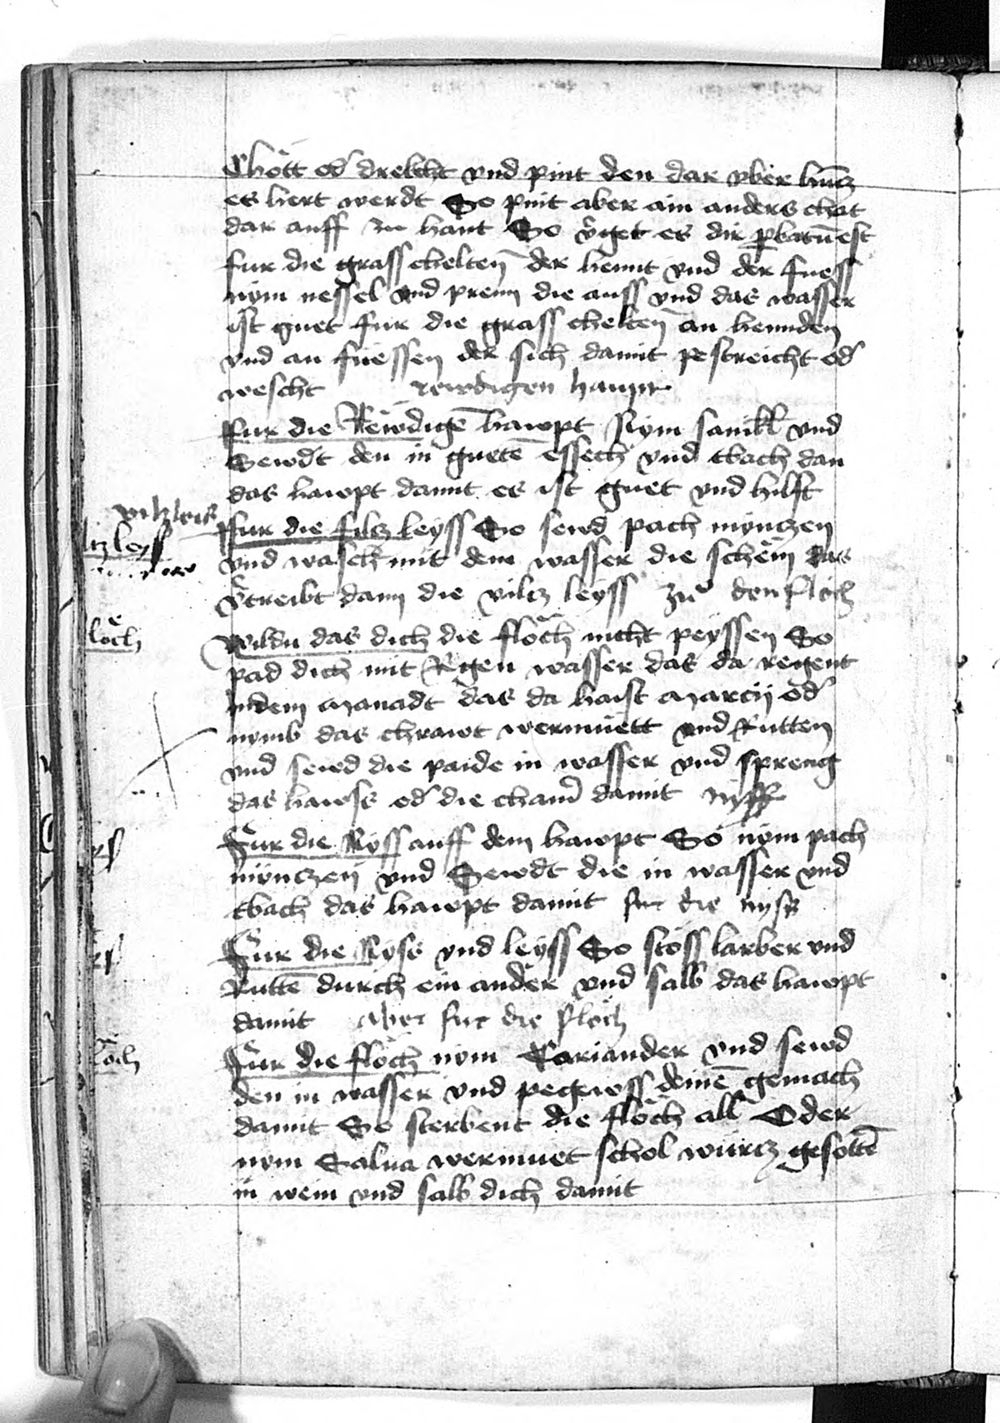 Chott od dreklht vnd pint den dar vber huncz
es hert werdt So pint aber ain anders chot
dar auff zu hant So v̈get es dir probatū est
fur die grass chelten̄ der hennt vnd der fuess
nym nessel vnd prenn die auss vnd das wasser
ist guet fur die grass chelten̄ an hennden
vnd an fuessen der sich damit pestreicht od
wescht rewdigen haupt
Fur die Rewdigē hawpt Nym sanikl vnd
Sewdt den in guetē essech vnd tbach dan
das hawpt damit es ist guet vnd hilfft
vilzleis
Fur die filcz leyss So sewd pach mynczen
vnd wasch mit dem wasser die schem das
v̈treibt dann die vilcz leyss zu den floch
Wildu das dich die floch nicht peyssen So
pad dich mit Regen wasser das da regent
in dem manadt das da haist marcij od
nymb das chrawt wermuett vnd Rutten
vnd sewd die paide in wasser vnd spreng
das hawss od die cham̄ damit nyss
Fur die Nyss auff dem hawpt So nym pach
mynczen vnd Sewdt die in wasser vnd
tbach das hawpt damit fur die nyss
Fur die Nyss vnd leyss So stoss larber vnd
Ruttē durch ein ander vnd salb das hawpt
damit aber fur die floch
Fur die floch nym Coriander vnd sewd
den in wasser vnd pegewss deinē gemach
damit So sterbent die floch all Oder
nym Salua wermuet schol wurcz gesottē
in wein vnd salb dich damit